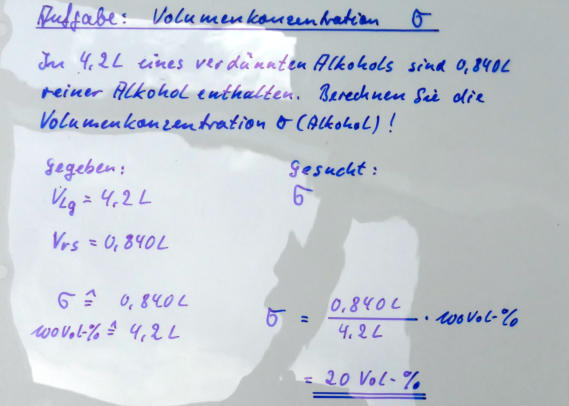 Aufgabe: Volumenkonzentration σ
In 4,2L eines verdünnten Alkohols sind 0,840L
reiner Alkohol enthalten. Berechnen Sie die
Volumenkonzentration σ (Alkohol)!
Gegeben: Gesucht:
VLg = 4,2 L σ
Vrs = 0,840L
σ ≙ 0,840L
100 Vol-% ≙ 4,2 L
σ = 0,840L / 4,2L · 100 Vol-%
= 20 Vol-%